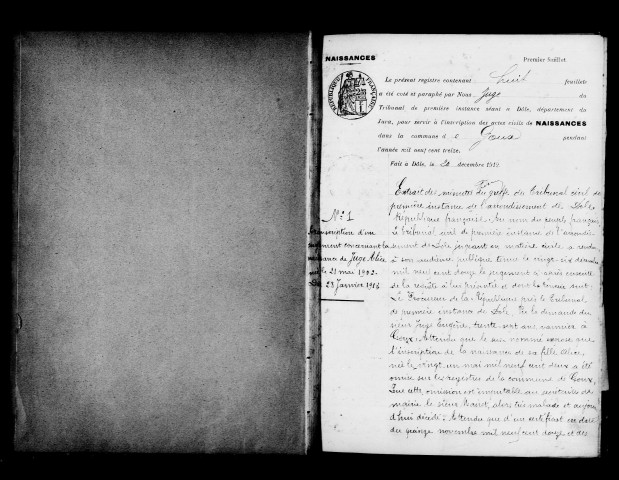 NAISSANCES
Premier Feuillet
RÉPUBLIQUE FRANÇAISE
Le présent registre contenant huit feuillets
a été coté et paraphé par Nous Juge du
Tribunal de première instance séant à Dôle, département du
Jura, pour servir à l'inscription des actes civils de NAISSANCES
dans la commune d e Goux pendant
l'année mil neuf cent treize.
Fait à Dôle, le 20 décembre 1912.
N° 1
Transcription d'un
jugement concernant la
naissance de Juge Alice
née le 21 mai 1902
23 Janvier 1913
Extrait des minutes du greffe du Tribunal civil de
première instance de l'arrondissement de Dole
République française. Au nom du peuple français
Le tribunal civil de première instance de l'arrondis-
sement de Dole jugeant en matière civile a rendu
à son audience publique tenue le vingt six décembre
mil neuf cent douze le jugement ci après ensuite
de la requête à lui présentée et dont la teneur suit:
Le Procureur de la République près le Tribunal
de première instance de Dole, Vu la demande du
sieur Juge Eugène, trente sept ans, vannier à
Goux; Attendu que le sus nommé expose que
l'inscription de la naissance de sa fille Alice,
née le vingt un mai mil neuf cent deux a été
omise sur les registres de la commune de Goux,
Que cette omission est imputable au secrétaire de
mairie le sieur alors très malade et aujour
d'hui décédé; Attendu que d'un certificat en date
du quinze novembre mil neuf cent douze et des